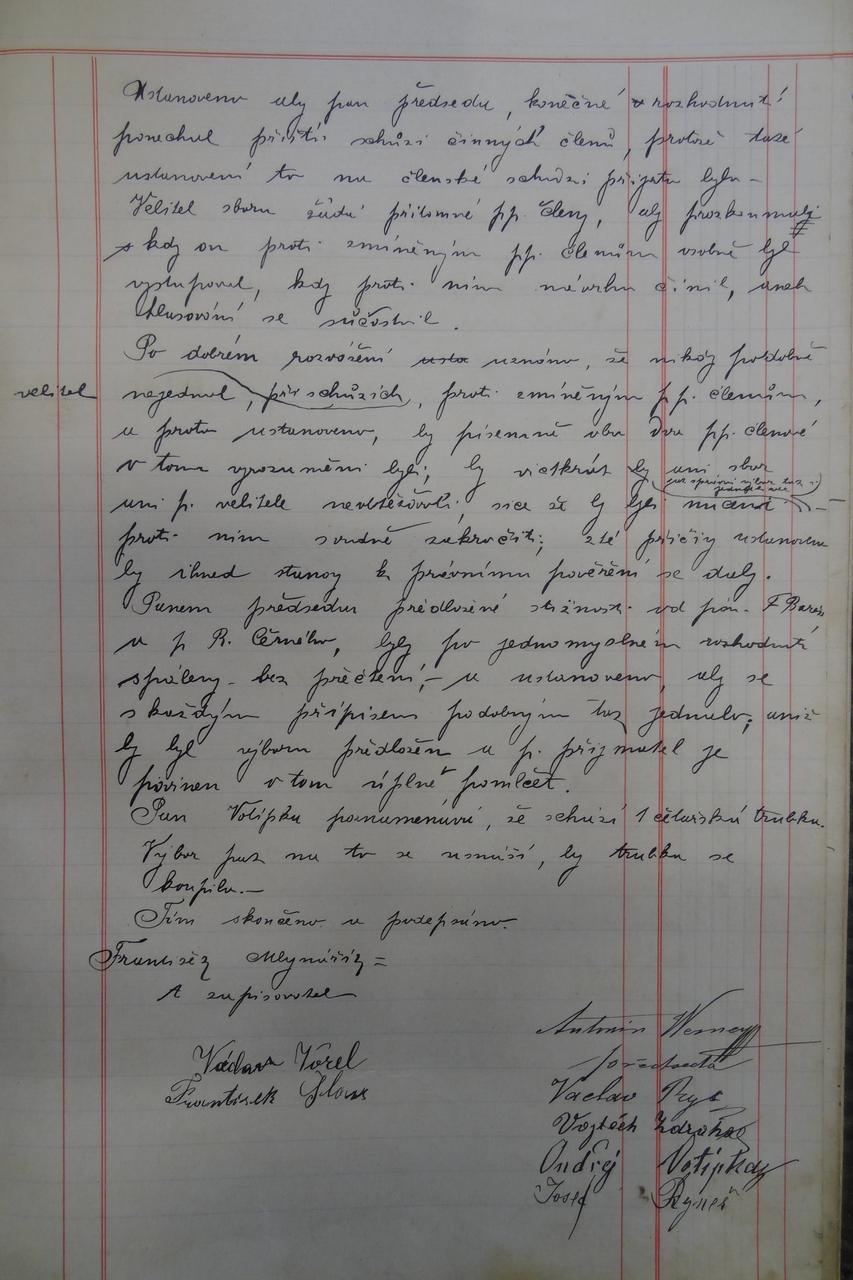 Ustanoveno aby pan předseda, konečné rozhodnutí
ponechal příští schůzi činných členů, protože také
ustanovení to na členské schůzi přijato bylo –
Velitel sboru žádá přítomné pp. členy, aby prozkoumaly
kdy on proti zmíněným pp. členům osobně byl
vystupoval, kdy proti nim návrhu činil, aneb
hlasování se súčastnil.
Po dobrém rozvážení usta uznáno, že nikdy podobně
velitel nejednal, při schůzích, proti zmíněným pp. členům,
a proto ustanoveno, by písemně oba dva pp. členové
v tom vyrozuměni byli; by víckrát by ani sbor
jednání
ani p. velitele neobtěžovali, sice že by byli nuceni –
proti nim soudně zakročiti; z té příčiny ustanoveno
by ihned stanovy k právnímu pověření se daly.
Panem předsedou předložené stížnosti od pán. F Bareš
a p R. Černého, byly po jednomyslném rozhodnutí
spáleny – bez přečtení, – a ustanoveno, aby se
s každým přípisem podobným tak jednalo; aniž
by byl výboru předložen a p. přijmatel je
povinen v tom úplně pomlčet.
Pan Votípka poznamenává, že schází 1 četařská trubka.
Výbor pak na to se usnáší, by trubka se
koupila. –
Tím skončeno a podepsáno.
František Mlynářík =
t zapisovatel
Antonín Wesney
předseda
Václav Vorel
František Slouk
Václav Ryc
Vojtěch Zdráhal
Ondřej Votípka
Josef Ryneš